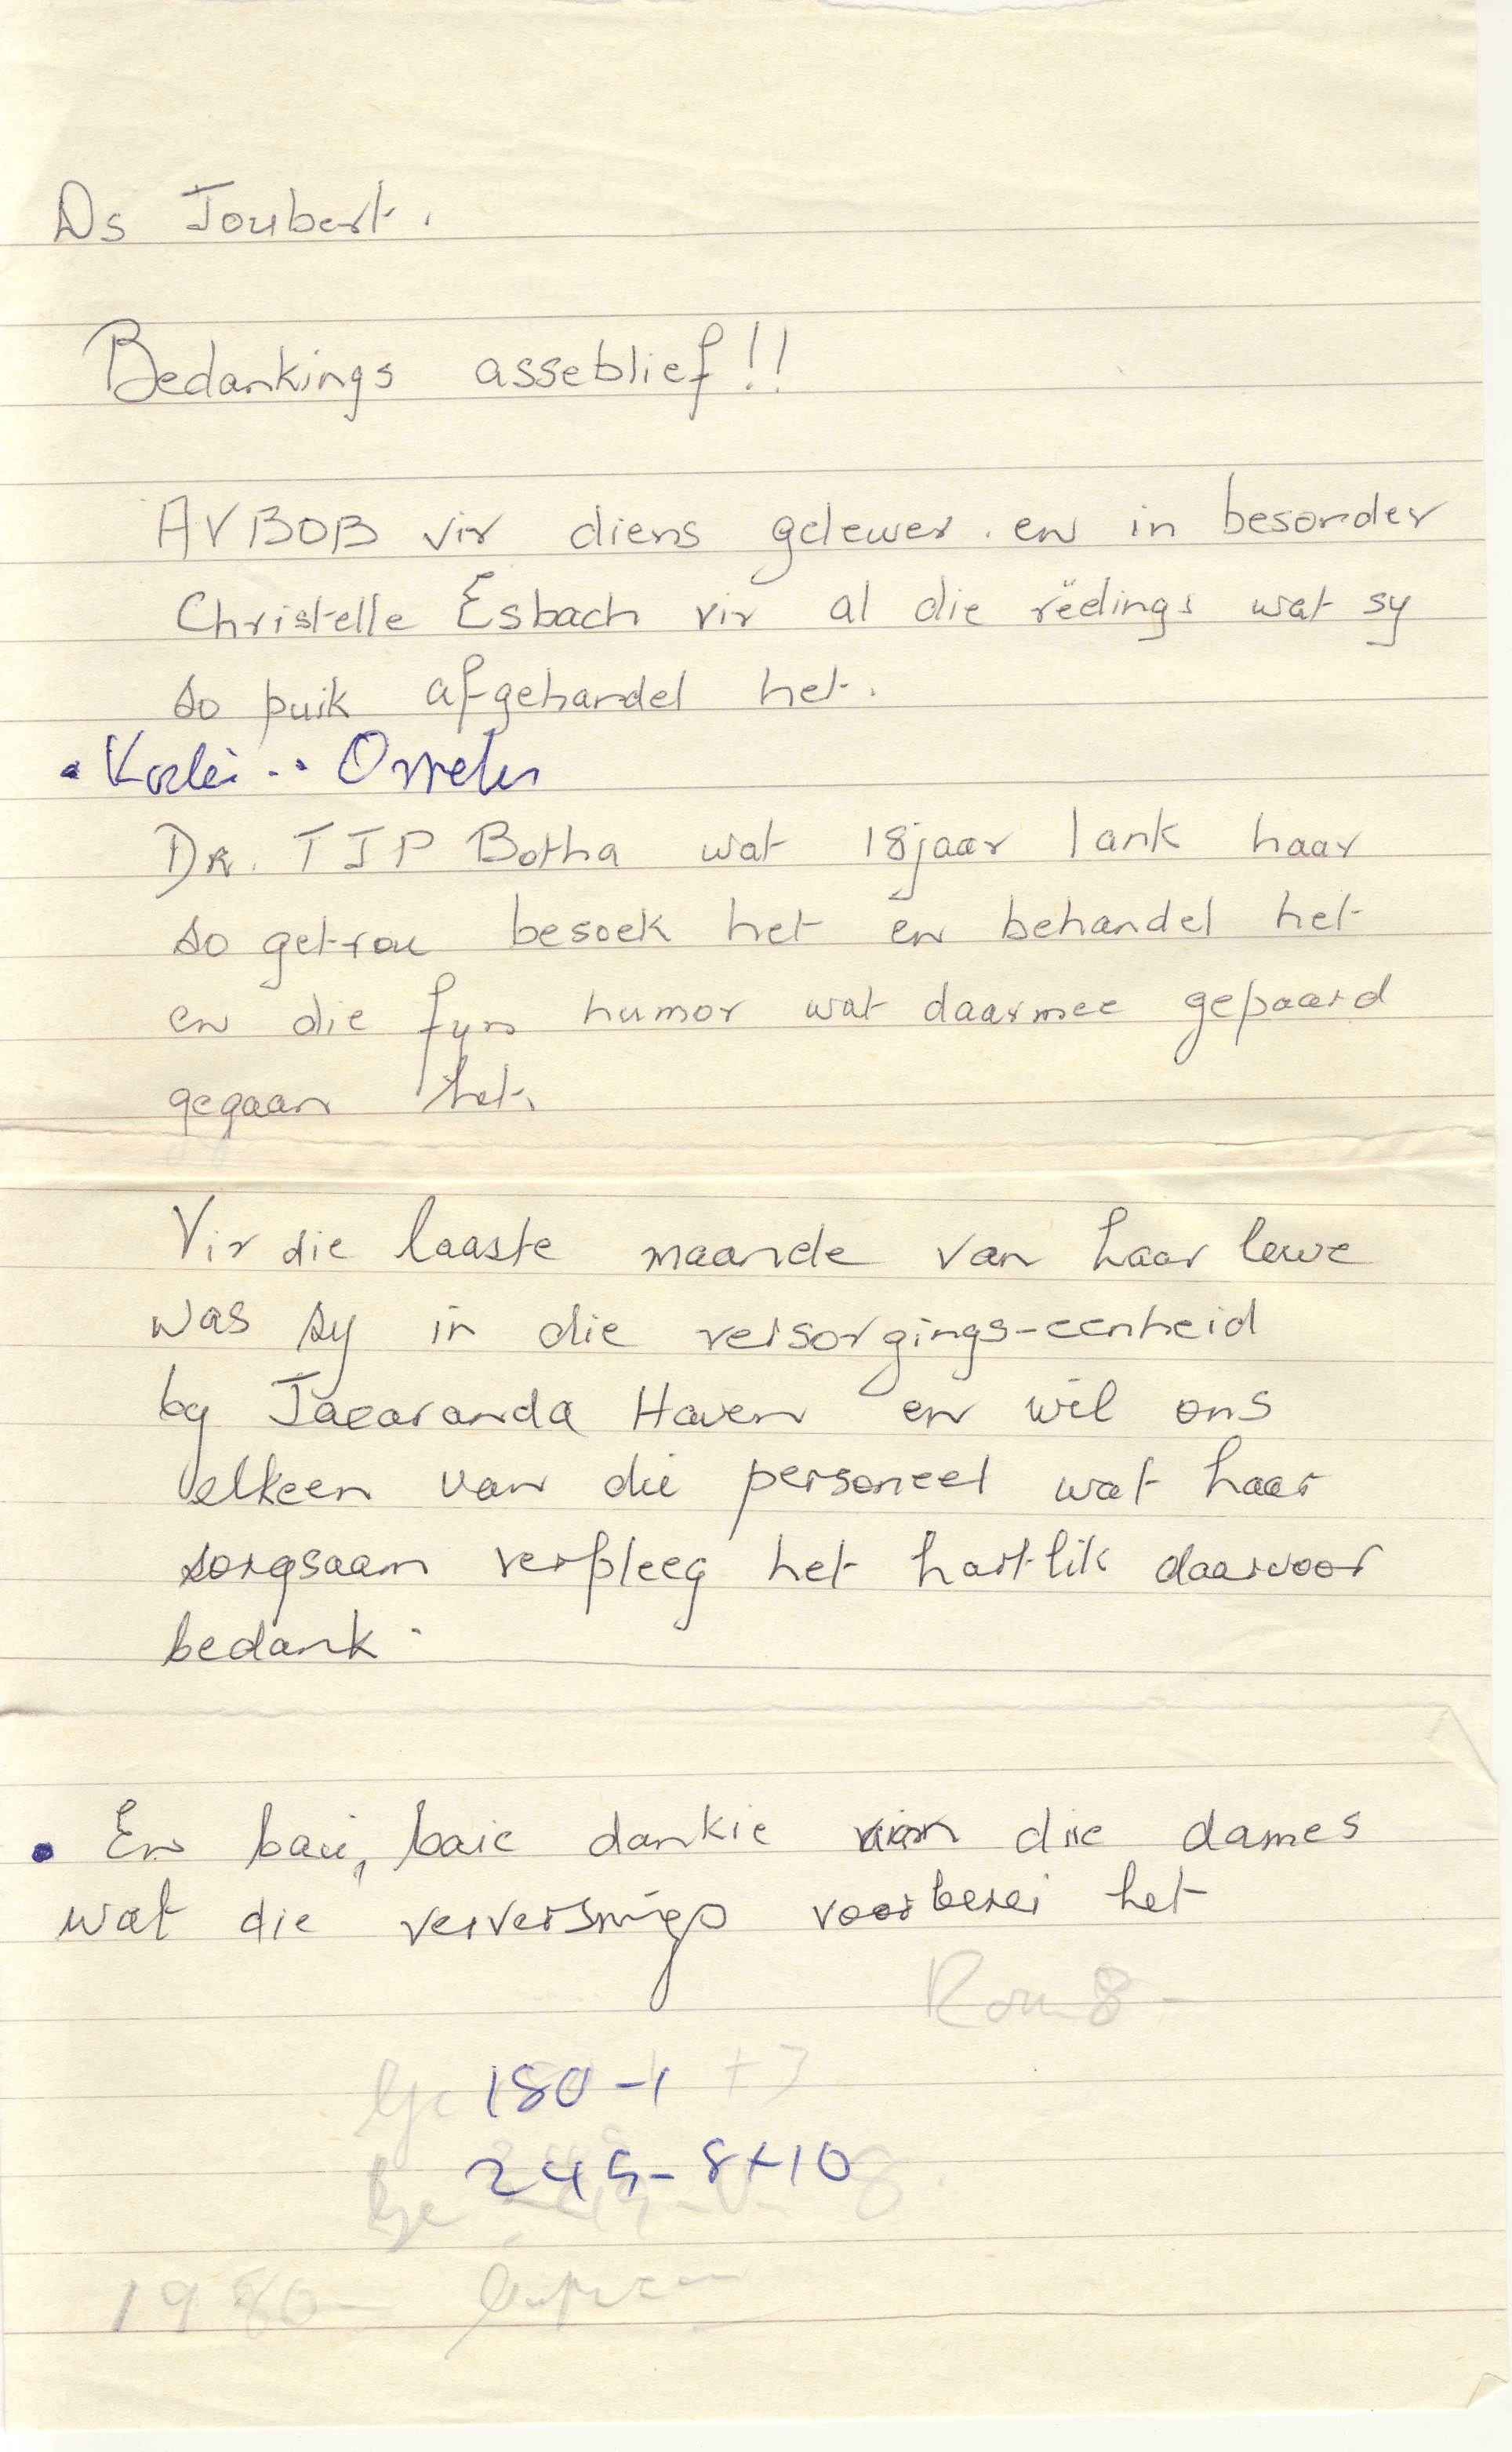 Ds Joubert.
Bedankings asseblief!!
AVBOB vir diens gelewer. en in besonder
Christelle Esbach vir al die rëelings wat sy
so puik afgehandel het.
Dr. TJP Botha wat 18 jaar lank haar
so getrou besoek het en behandel het
en die fyn humor wat daarmee gepaard
gegaan het.
Vir die laaste maande van haar lewe
was sy in die versorgings-eenheid
by Jacaranda Haven en wil ons
elkeen van die personeel wat haar
sorgsaam verpleeg het hartlik daarvoor
bedank.
• En baie, baie dankie die dames
wat die verversings voorberei het
Rom 8 -
180-1 + 3
245 - 8+10